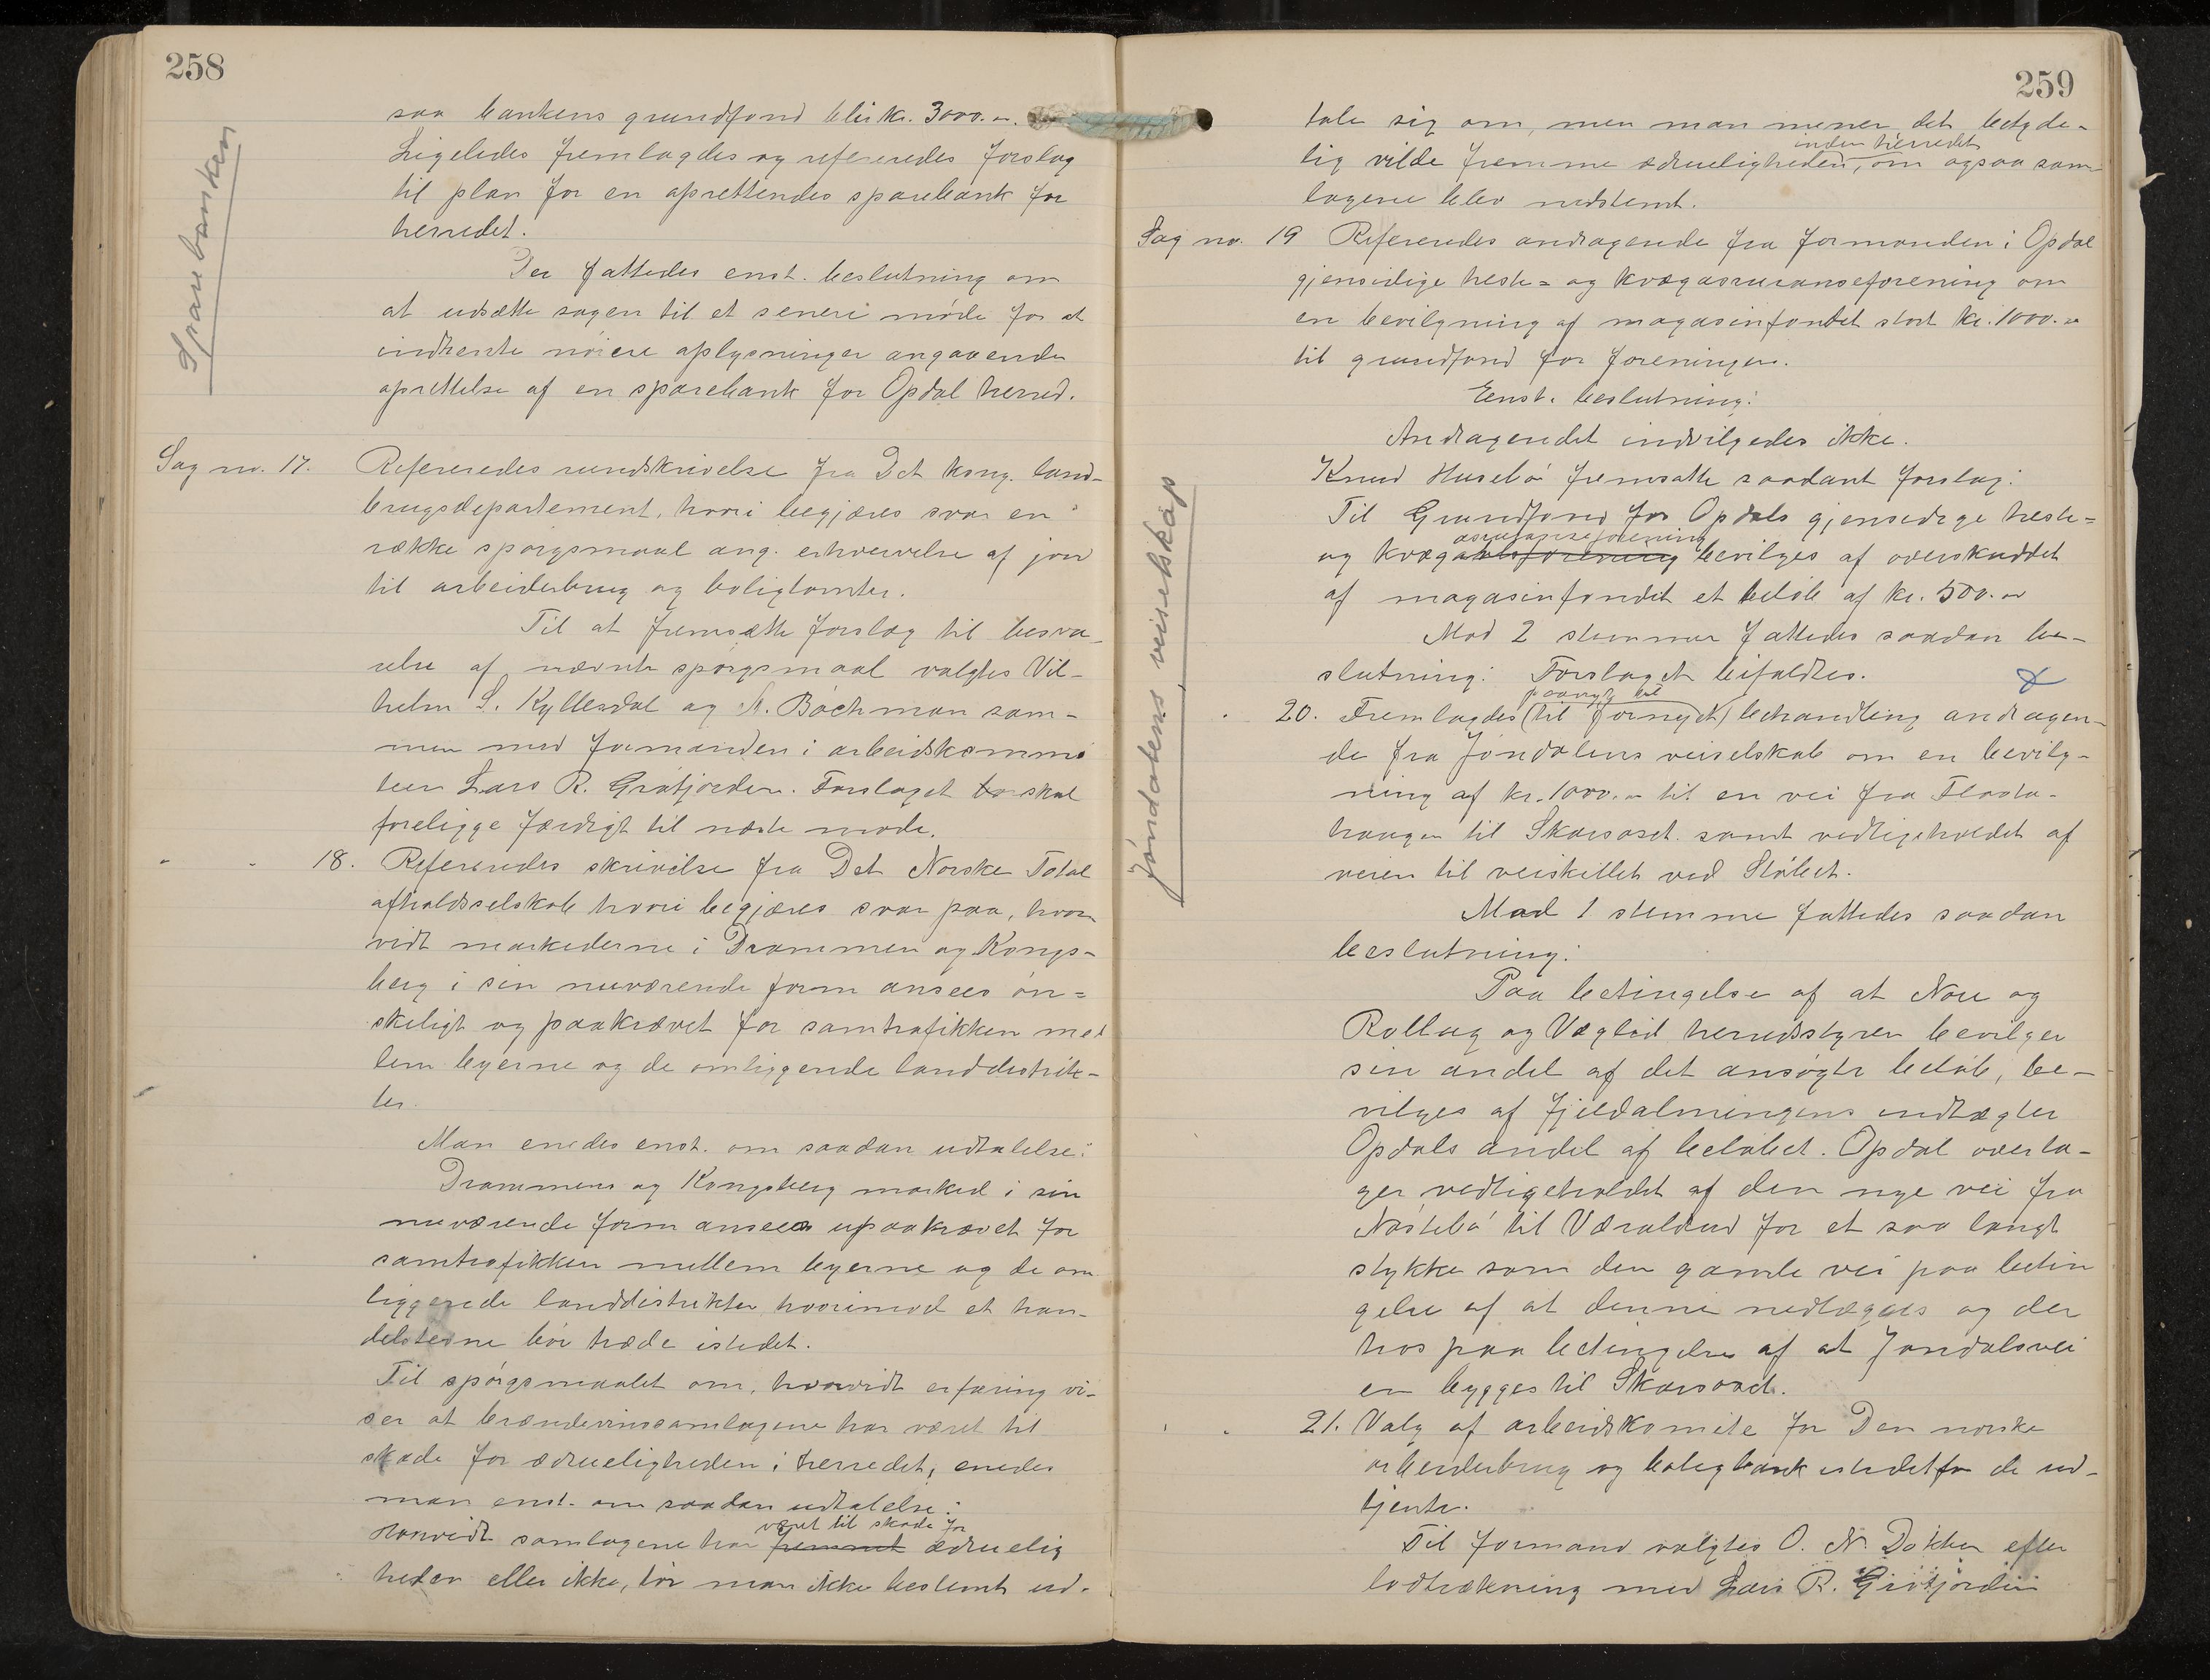 258
Sparebanken
saa bankens grundfond blir kr. 3000.00.
Ligeledes fremlagdes og refereredes forslag
til plan for en oprettendes sparebank for
herredet.
Der fattedes enst. beslutning om
at udsætte sagen til et senere møde for at
indhente nøiere oplysninger angaaende
oprettelse af en sparebank for Opdal herred.
Sag no. 17. Refereredes rundskrivelse fra Det kong. land-
brugsdepartement, hvori begjæres svar en
række spørgsmaal ang. erhvervelse af jord
til arbeiderbrug og boligtomter.
Til at fremsætte forslag til besva-
relse af nævnte spørgsmaal valgtes Vil-
helm S. Kyllesdal og A. Bachman sam-
men med formanden i arbeidskommi
teen Lars R. Gråtjorden. Forslaget bør skal
foreligge færdigt til næste møde.
" " 18. Refereredes skrivelse fra Det Norske Total
afholdsselskab hvori begjæres svar paa, hvor
vidt markederne i Drammen og Kongs-
berg i sin nuværende form ansees øn=
skeligt og paakrævet for samtrafikken mel
lem byerne og de omliggende landdistrik-
ter.
Man enedes enst. om saadan udtalelse:
Drammens og Kongsberg marked i sin
nuværende form ansees upaakrævet for
samtrafikken mellem byerne og de om
liggende landdistrikter hvorimod et han-
delstevne bør træde istedet.
Til spørgsmaalet om, hvorvidt erfaring vi-
ser at brændevinssamlagene har været til
skade for ædrueligheden i herredet, enedes
man enst. om saadan udtalelse:
været til skade for
Hvorvidt samlagene har fremmet ædruelig
heden eller ikke, tør man ikke bestemt ud-
259
tale sig om, men man mener det betyde-
inden herredet
lig vilde fremme ædrueligheden, om ogsaa sam-
lagene blev nedstemt.
Sag no. 19 Refereredes andragende fra formanden i Opdal
gjensidige heste= og kvægassuranseforening om
en bevilgning af magasinfondet stort kr. 1000.00
til grundfond for foreningen.
Enst. beslutning:
Andragendet indvilgedes ikke.
Knud Husebø fremsatte saadant forslag:
Til Grundfond for Opdals gjensidige heste=
assuranseforening
og kvægavlsforening bevilges af overskuddet
af magasinfondet et beløb af kr. 500.00
Mod 2 stemmer fattedes saadan be-
slutning: Forslaget bifaldtes.
Jøndalens veiselskap
paanyt til
" 20. Fremlagdes (til fornyet) behandling andragen-
de fra Jøndalens veiselskab om en bevilg-
ning af kr. 1000.00 til en vei fra Flaata-
haugen til Skarsaset samt vedligeholdet af
veien til veiskillet ved Stølset.
Mod 1 stemme fattedes saadan
beslutning:
Paa betingelse af at Nore og
Rollag og Vægli herredsstyrer bevilger
sin andel af det ansøgte beløb, be-
vilges af fjeldalmingens indtægter
Opdals andel af beløbet. Opdal overta-
ger vedligeholdet af den nye vei fra
Nøstebø til Væraldrud for et saa langt
stykke som den gamle vei paa betin
gelse af at denne nedlægges og der
hos paa betingelse af at Jondalsvei
en bygges til Skarsaset.
" " 21. Valg af arbeidskomite for Den norske
arbeiderbrug og boligbank istedetfor de ud-
tjente.
Til formand valgtes O. N. Dokken efter
lodtrækning med Lars R. Gråtjorden